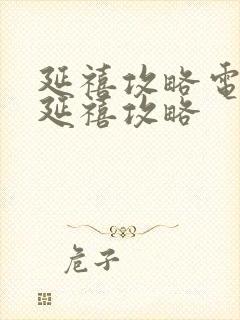 延禧攻略電
延禧攻略
危子